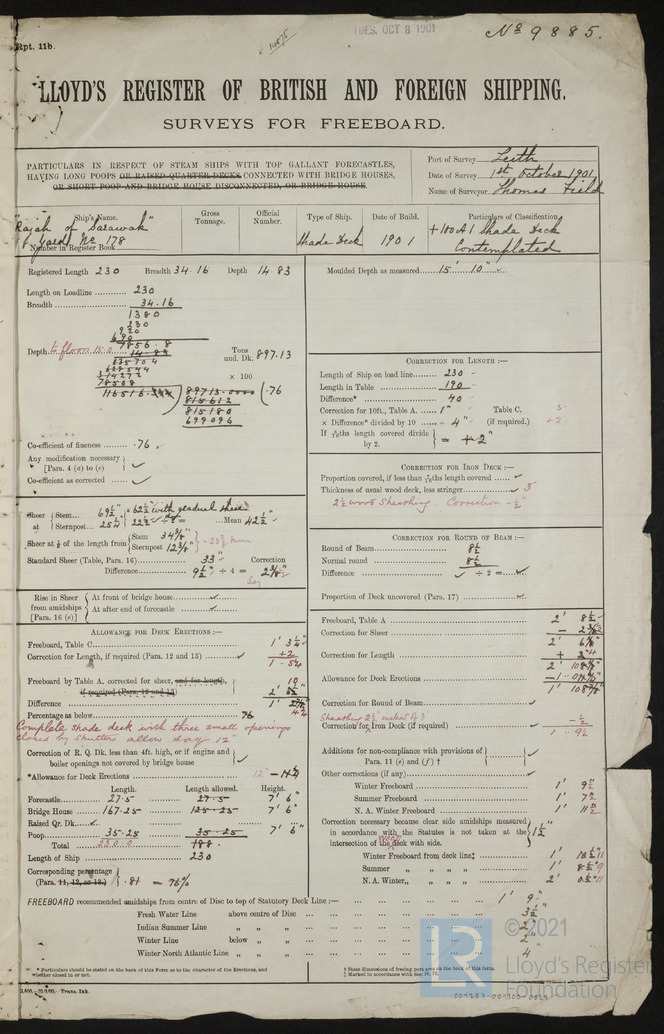 Rpt. 11b.
TUES. OCT 8 1901
No 9885.
LLOYD'S REGISTER OF BRITISH AND FOREIGN SHIPPING.
SURVEYS FOR FREEBOARD.
PARTICULARS IN RESPECT OF STEAM SHIPS WITH TOP GALLANT FORECASTLES,
HAVING LONG POOPS OR RAISED QUARTER DECKS CONNECTED WITH BRIDGE HOUSES,
OR SHORT POOP AND BRIDGE HOUSE DISCONNECTED, OR BRIDGE HOUSE.
Port of Survey Leith
Date of Survey 1st October 1901
Name of Surveyor Thomas Field
Ship's Name. Gross Tonnage. Official Number. Type of Ship. Date of Build. Particulars of Classification
"Rajah of Sarawak"
Yard No 178
Number in Register Book
Shade Deck 1901 +100A1 Shade Deck
Contemplated
Registered Length 230 Breadth 34.16 Depth 14.83
Length on Loadline 230
Breadth 34.16
1380
230
920
690
7856.8
Depth to floor 15.0 14.83
Tons und. Dk. 897.13
× 100
.76
815612
815180
699096
Co-efficient of fineness .76
Any modification necessary
[Para. 4 (a) to (e)
Co-efficient as corrected
Sheer at Stem 69½" Sternpost 25¼ with gradual sheer Mean 42½"
Sheer at ⅛ of the length from Stem 34⅜" Sternpost 12⅜"
Standard Sheer (Table, Para. 16) 33" Correction
Difference 9½" ÷ 4 =
Say
Rise in Sheer from amidships [Para. 16 (e)]
At front of bridge house
At after end of forecastle
ALLOWANCE FOR DECK ERECTIONS:—
Freeboard, Table C 1' 3¼"
Correction for Length, if required (Para. 12 and 13) +2
1 - 5¼
Freeboard by Table A. corrected for sheer, and for length,
if required (Para. 12 and 13)
Difference
Percentage as below 76
Complete shade deck with three small openings
closed by shutters allow say 12"
Correction of R. Q. Dk. less than 4ft. high, or if engine and
boiler openings not covered by bridge house
*Allowance for Deck Erections 12"
Length. Length allowed. Height.
Forecastle 27.5 27.5 7' 6"
Bridge House 167.25 125.25 7' 6"
Raised Qr. Dk.
Poop 35.25 35.25 7' 6"
Total 230.0 188.
Length of Ship 230
Corresponding percentage
(Para. 11, 12, or 13.) .81 = 76%
Moulded Depth as measured 15' 10"
CORRECTION FOR LENGTH:—
Length of Ship on load line 230
Length in Table 190
Difference* 40
Correction for 10ft., Table A. 1" Table C. .5
× Difference* divided by 10 4" (if required.) +2
If 6/10ths length covered divide
by 2. = +2"
CORRECTION FOR IRON DECK:—
Proportion covered, if less than 7/10ths length covered
Thickness of usual wood deck, less stringer 3
2½ wood Sheathing Correction -½"
CORRECTION FOR ROUND OF BEAM:—
Round of Beam 8½
Normal round 8½
Difference ÷ 2 =
Proportion of Deck uncovered (Para. 17)
Freeboard, Table A 2' 8½
Correction for Sheer
2' 6⅛"
Correction for Length
Allowance for Deck Erections
Correction for Round of Beam
Sheathing 2½ instead of 3
Correction for Iron Deck (if required) -½
1 9½
Additions for non-compliance with provisions of
Para. 11 (e) and (f) †
Other corrections (if any)
Winter Freeboard 1' 9½"
Summer Freeboard 1' 7½
N. A. Winter Freeboard 1' 11½
Correction necessary because clear side amidships measured
in accordance with the Statutes is not taken at the
intersection of the wood deck with side. 1½
Winter Freeboard from deck line‡ 1' 11
Summer „ „ „ „ 1' 9
N. A. Winter „ „ „ „ 2' 11
FREEBOARD recommended amidships from centre of Disc to top of Statutory Deck Line:— 1' 9"
Fresh Water Line above centre of Disc 3½"
Indian Summer Line „ „ „ 2"
Winter Line below „ „ 2"
Winter North Atlantic Line „ „ „ 4"
* Particulars should be stated on the back of this Form as to the character of the Erections, and
whether closed in or not.
† State dimensions of freeing port area on the back of this form.
‡ Marked in accordance with
Trans. Ink.
© 2021
Lloyd's Register
Foundation
LR